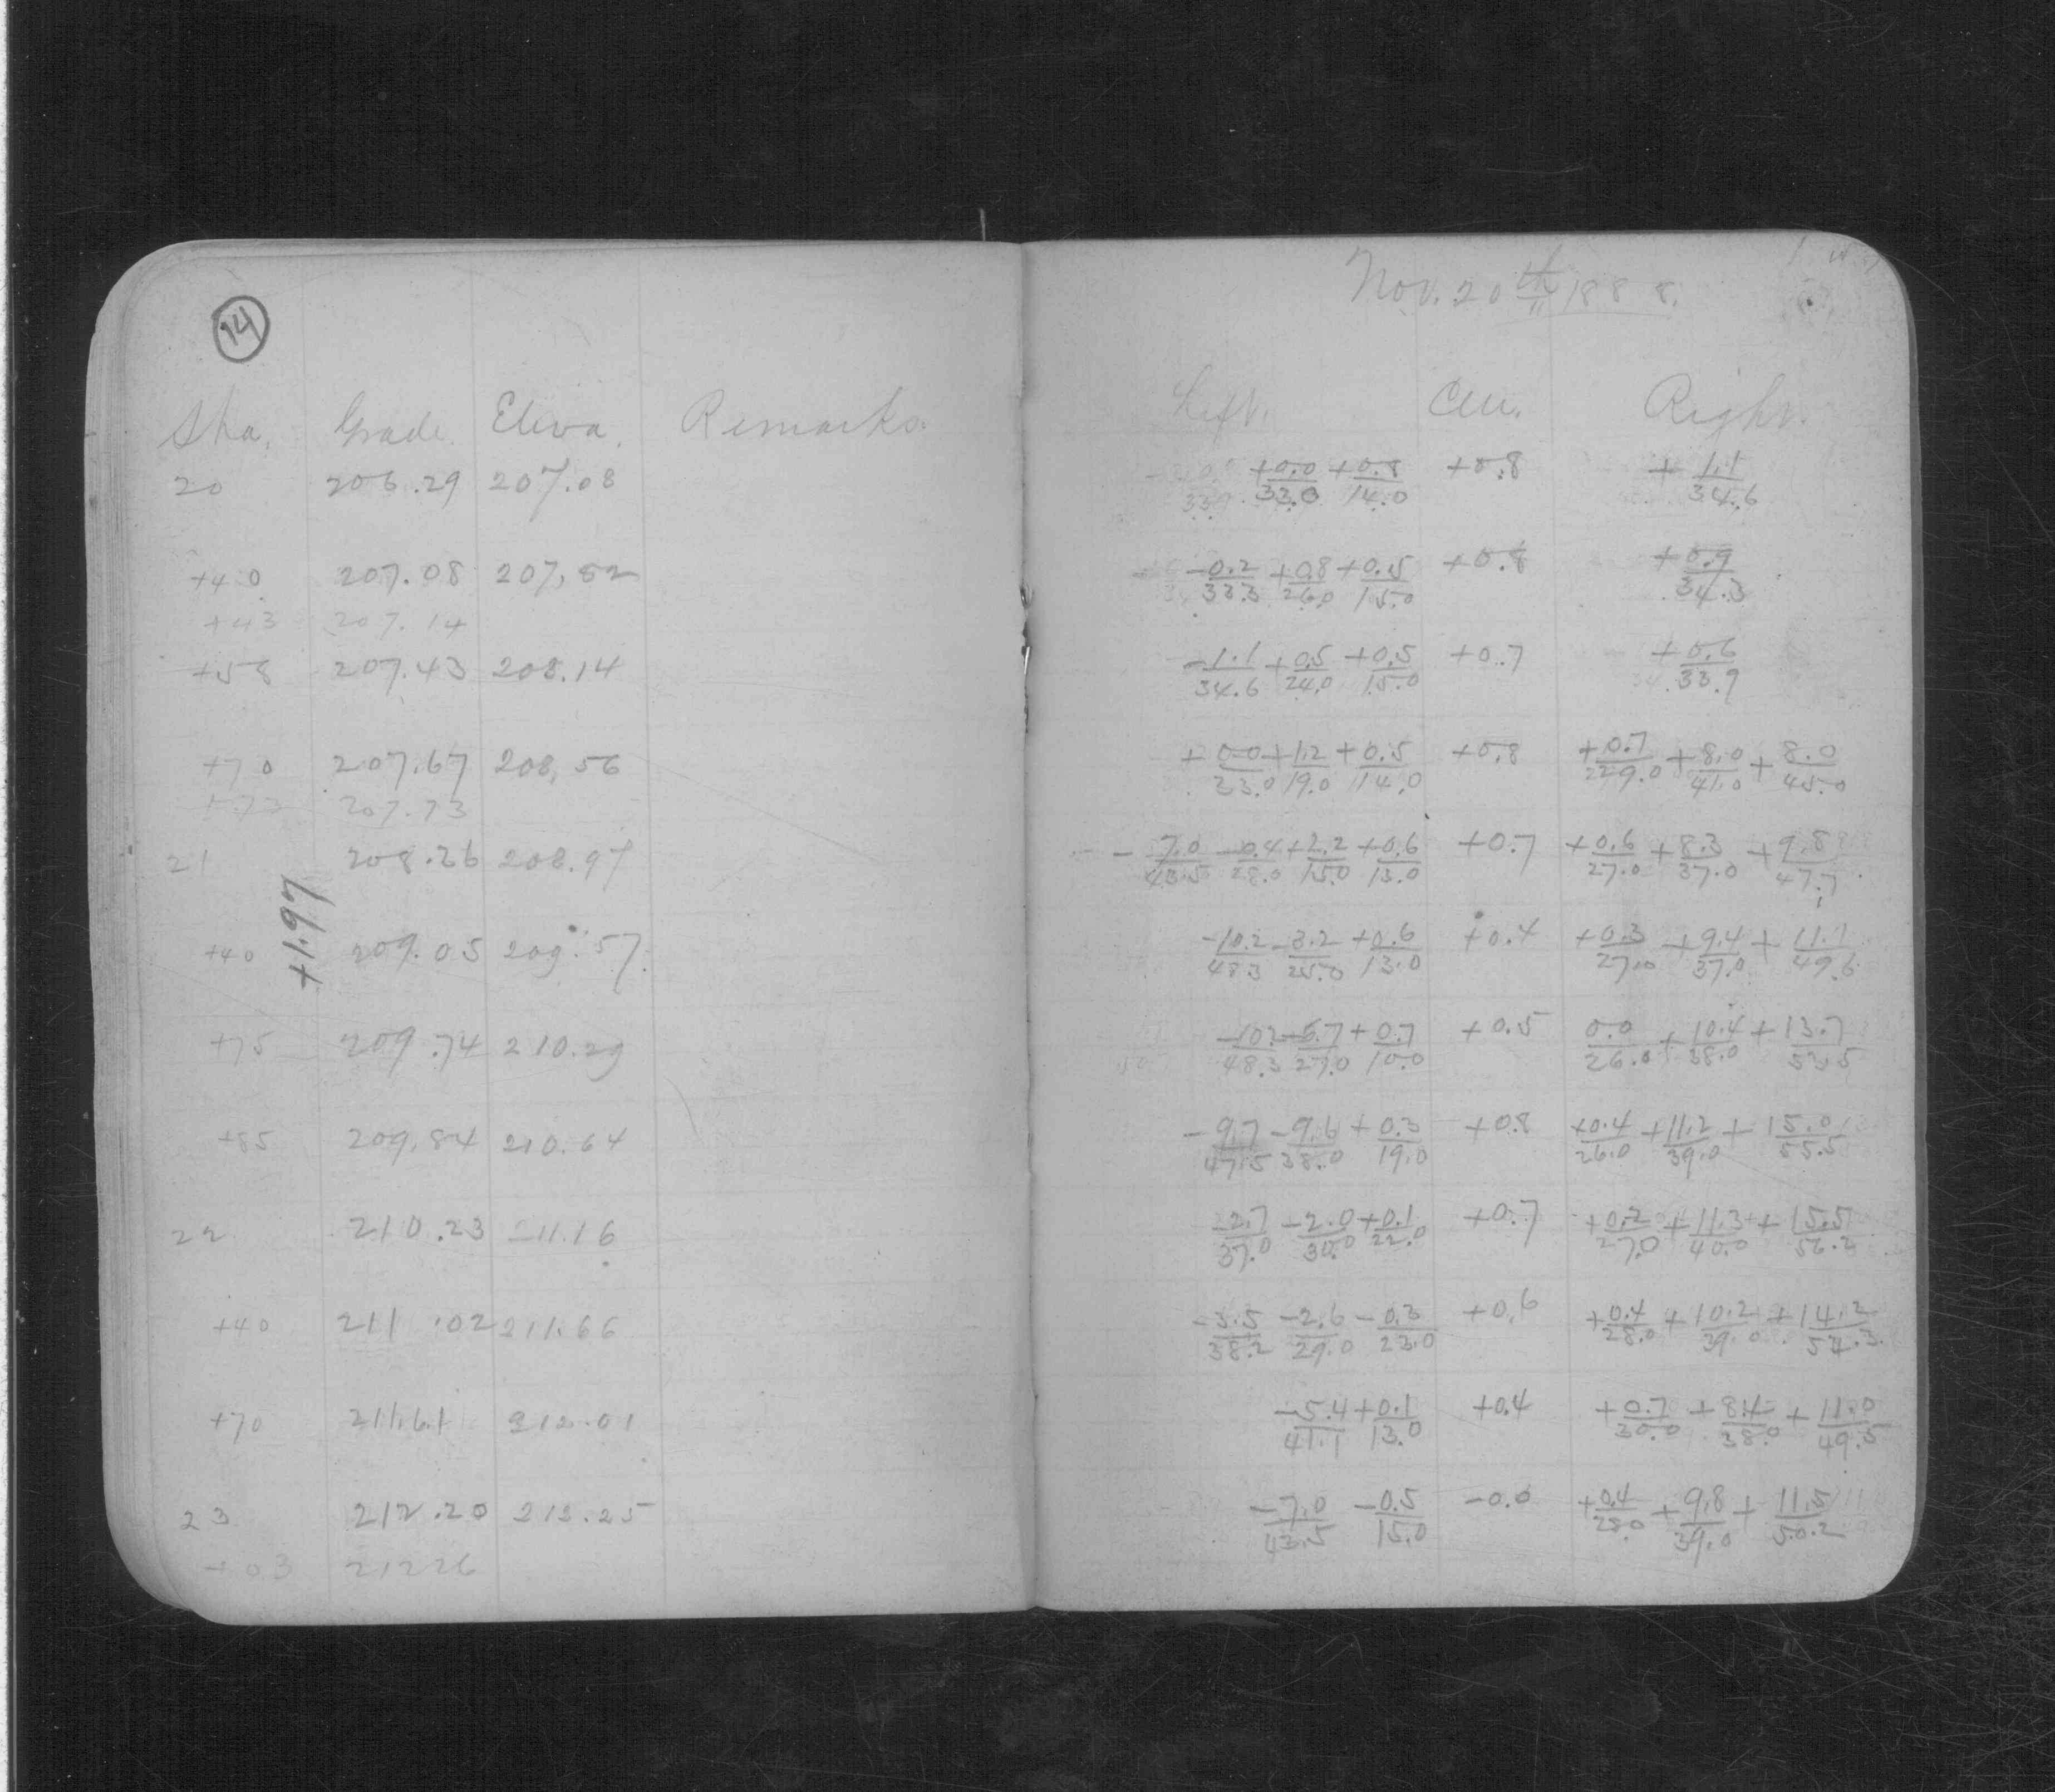 14
Nov. 20th 1888.
Sta. Grade. Eleva. Remarks. Left. Cen. Right.
20 206.29 207.08 +0.0/33.0 +0.8/14.0 +0.8 +1.1/34.6
+40 207.08 207.82 -0.2/33.3 +0.8/26.0 +0.5/15.0 +0.8 +0.9/34.3
+43 207.14
+58 207.43 208.14 -1.1/34.6 +0.5/24.0 +0.5/15.0 +0.7 +0.6/33.9
+70 207.67 208.56 +0.0/33.0 +1.2/19.0 +0.5/14.0 +0.8 +0.7/29.0 +8.0/41.0 +8.0/45.0
+73 207.73
21 208.26 208.97 -7.0/43.5 -0.4/28.0 +2.2/15.0 +0.6/13.0 +0.7 +0.6/27.0 +8.3/37.0 +9.8/47.7
+1.97
+40 209.05 209.57 -10.2/48.3 -3.2/25.0 +0.6/13.0 +0.4 +0.3/27.0 +9.4/37.0 +11.1/49.6
+75 209.74 210.29 -10.2/48.3 -5.7/27.0 +0.7/10.0 +0.5 0.0/26.0 +10.4/38.0 +13.7/53.5
+85 209.84 210.64 -9.7/47.5 -9.6/38.0 +0.3/19.0 +0.8 +0.4/26.0 +11.2/39.0 +15.0/55.5
22 210.23 211.16 -2.7/37.0 -2.0/30.0 +0.1/22.0 +0.7 +0.2/27.0 +11.3/40.0 +15.5/56.2
+40 211.02 211.66 -3.5/38.2 -2.6/29.0 -0.3/23.0 +0.6 +0.4/28.0 +10.2/39.0 +14.2/54.3
+70 211.61 212.01 -5.4/41.1 +0.1/13.0 +0.4 +0.7/30.0 +8.4/38.0 +11.0/49.5
23 212.20 212.25 -7.0/43.5 -0.5/15.0 -0.0 +0.4/28.0 +9.8/39.0 +11.5/50.2
+03 212 26